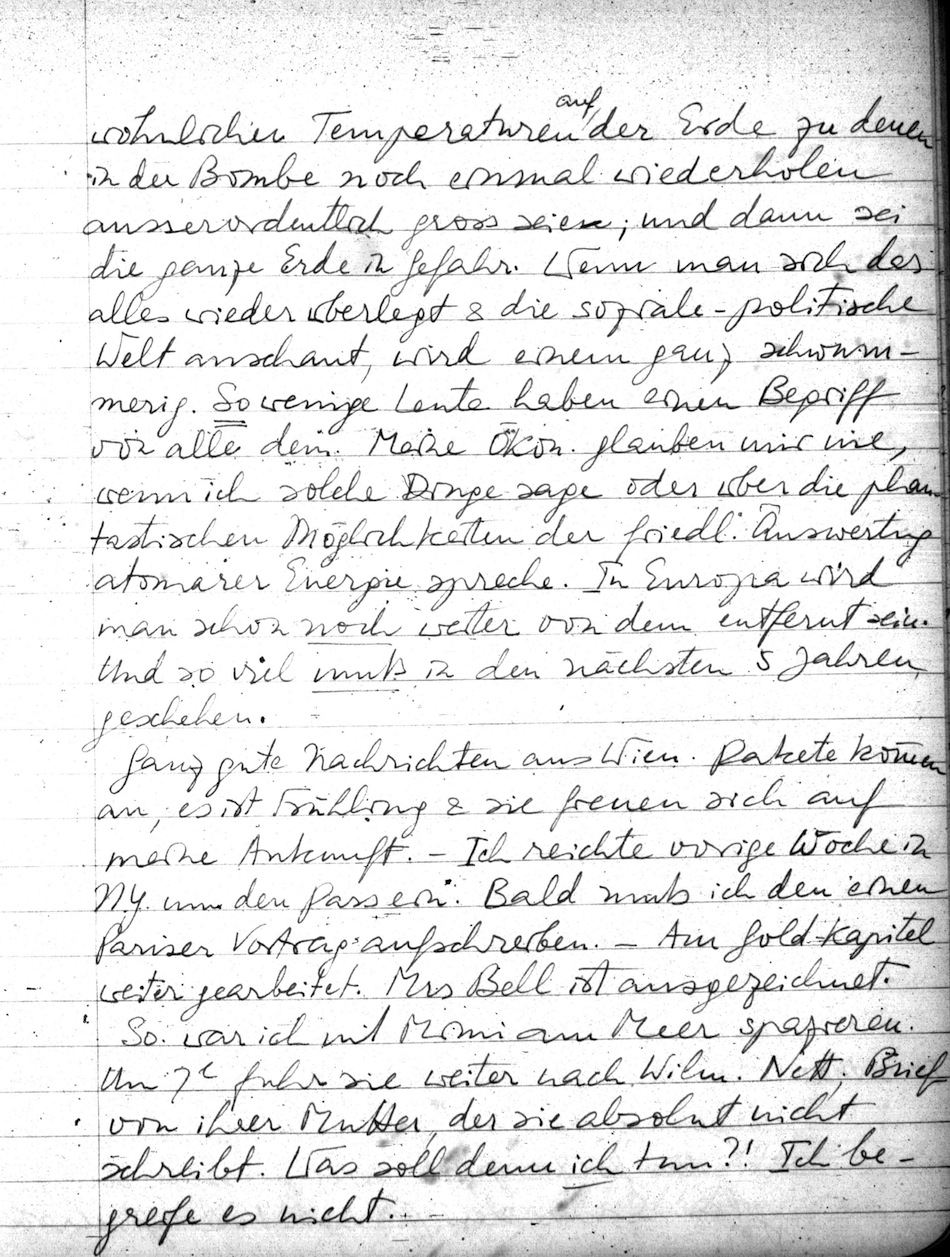 wöhnlichen Temperaturen auf der Erde zu denen
in der Bombe noch einmal wiederholen
ausserordentlich gross seien; und dann sei
die ganze Erde in Gefahr. Wenn man sich das
alles wieder überlegt & die soziale-politische
Welt anschaut, wird einem ganz schwum-
merig. So wenige Leute haben einen Begriff
von alle dem. Meine Ökon. glauben mir nie,
wenn ich solche Dinge sage oder über die phan
tastischen Möglichkeiten der friedl. Auswertung
atomarer Energie spreche. In Europa wird
man schon noch weiter von dem entfernt sein.
Und so viel muß in den nächsten 5 Jahren
geschehen.
Ganz gute Nachrichten aus Wien. Pakete kommen
an, es ist Frühling & sie freuen sich auf
meine Ankunft. – Ich reichte vorige Woche in
N.Y. um den Pass ein. Bald muß ich den einen
Pariser Vortrag aufschreiben. – Am Gold-Kapitel
weiter gearbeitet. Mrs Bell ist ausgezeichnet.
So. war ich mit Mimi am Meer spazieren.
Um 7h fuhr sie weiter nach Wilm. Nett. Brief
von ihrer Mutter, der sie absolut nicht
schreibt. Was soll denn ich tun?! Ich be-
greife es nicht.